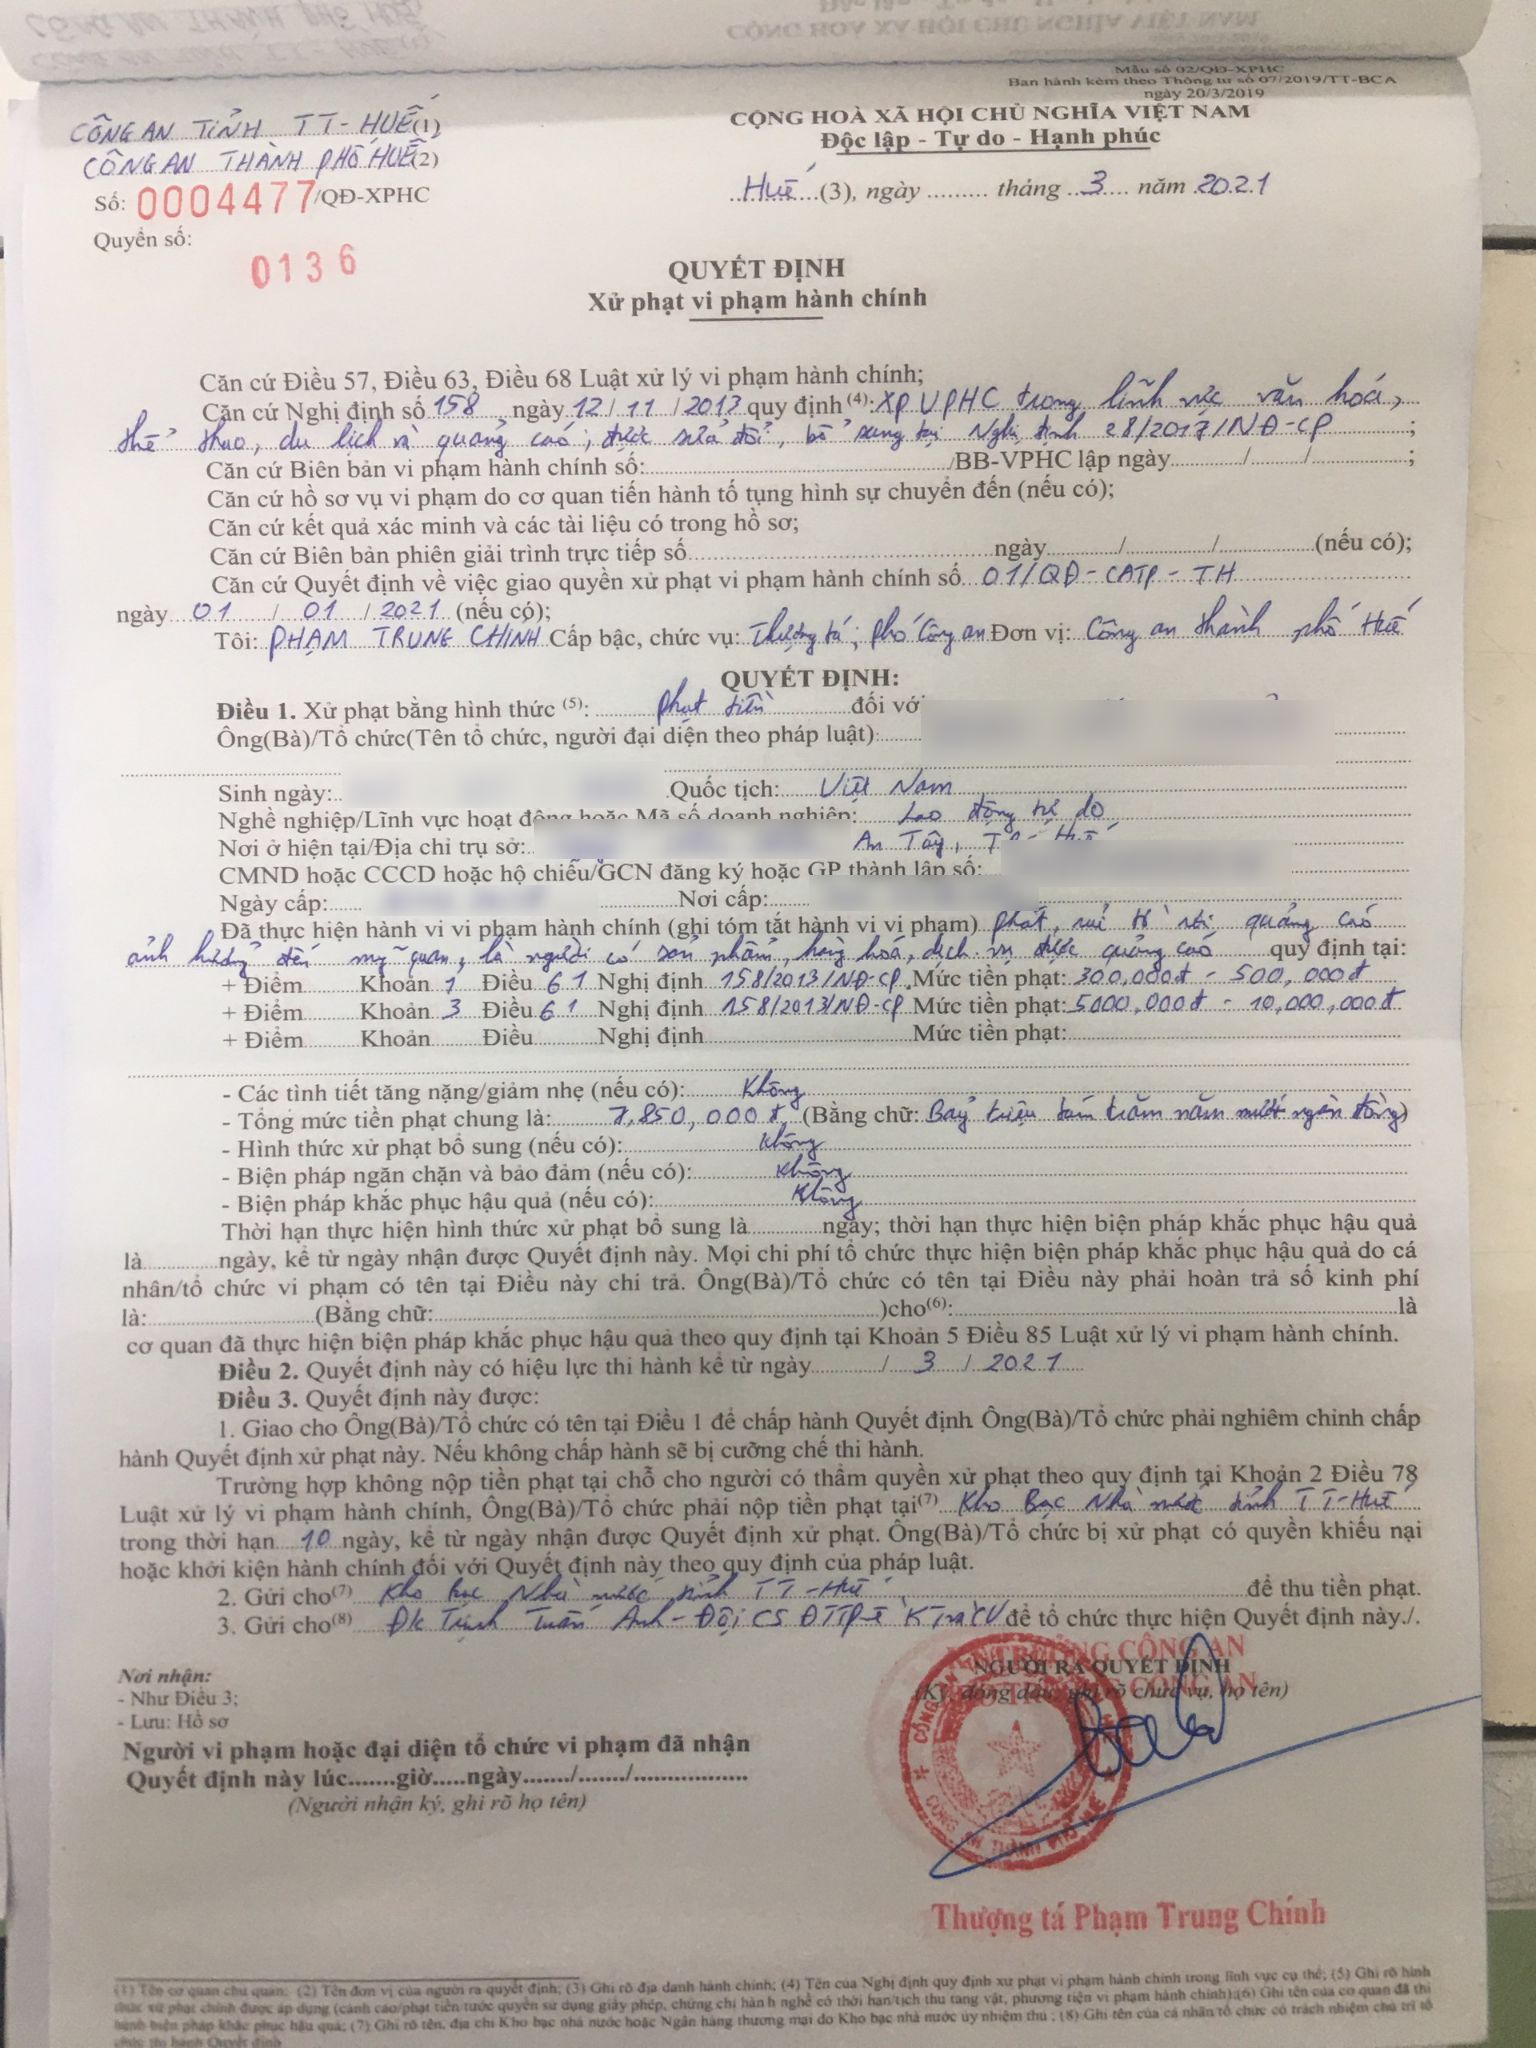 Mẫu số 02/QĐ-XPHC
Ban hành kèm theo Thông tư số 07/2019/TT-BCA
ngày 20/3/2019
CÔNG AN TỈNH TT-HUẾ(1)
CÔNG AN THÀNH PHỐ HUẾ(2)
Số: 0004477/QĐ-XPHC
Quyển số:
0136
CỘNG HOÀ XÃ HỘI CHỦ NGHĨA VIỆT NAM
Độc lập - Tự do - Hạnh phúc
Huế (3), ngày ......... tháng 3 năm 2021
QUYẾT ĐỊNH
Xử phạt vi phạm hành chính
Căn cứ Điều 57, Điều 63, Điều 68 Luật xử lý vi phạm hành chính;
Căn cứ Nghị định số 158 ngày 12/11/2013 quy định (4): XP VPHC trong lĩnh vực văn hoá,
thể thao, du lịch và quảng cáo; được sửa đổi, bổ sung tại Nghị định 28/2017/NĐ-CP ;
Căn cứ Biên bản vi phạm hành chính số: /BB-VPHC lập ngày / / ;
Căn cứ hồ sơ vụ vi phạm do cơ quan tiến hành tố tụng hình sự chuyển đến (nếu có);
Căn cứ kết quả xác minh và các tài liệu có trong hồ sơ;
Căn cứ Biên bản phiên giải trình trực tiếp số ngày / / (nếu có);
Căn cứ Quyết định về việc giao quyền xử phạt vi phạm hành chính số 01/QĐ-CATP-TH
ngày 01 / 01 / 2021 (nếu có);
Tôi: PHẠM TRUNG CHINH Cấp bậc, chức vụ: Thượng tá, phó Công an Đơn vị: Công an thành phố Huế
QUYẾT ĐỊNH:
Điều 1. Xử phạt bằng hình thức (5): phạt tiền đối với
Ông(Bà)/Tổ chức(Tên tổ chức, người đại diện theo pháp luật):
Sinh ngày: Quốc tịch: Việt Nam
Nghề nghiệp/Lĩnh vực hoạt động hoặc Mã số doanh nghiệp: Lao động tự do
Nơi ở hiện tại/Địa chỉ trụ sở: An Tây,
CMND hoặc CCCD hoặc hộ chiếu/GCN đăng ký hoặc GP thành lập số:
Ngày cấp: Nơi cấp:
Đã thực hiện hành vi vi phạm hành chính (ghi tóm tắt hành vi vi phạm) phát, tờ rơi quảng cáo
ảnh hưởng đến mỹ quan, là người có sản phẩm, hàng hoá, dịch vụ được quảng cáo quy định tại:
+ Điểm Khoản 1 Điều 61 Nghị định 158/2013/NĐ-CP Mức tiền phạt: 300,000đ - 500,000đ
+ Điểm Khoản 3 Điều 61 Nghị định 158/2013/NĐ-CP Mức tiền phạt: 5000,000đ - 10,000,000đ
+ Điểm Khoản Điều Nghị định Mức tiền phạt:
- Các tình tiết tăng nặng/giảm nhẹ (nếu có): Không
- Tổng mức tiền phạt chung là: 7,850,000đ (Bằng chữ: Bảy triệu tám trăm năm mươi ngàn đồng)
- Hình thức xử phạt bổ sung (nếu có): Không
- Biện pháp ngăn chặn và bảo đảm (nếu có): Không
- Biện pháp khắc phục hậu quả (nếu có): Không
Thời hạn thực hiện hình thức xử phạt bổ sung là ngày; thời hạn thực hiện biện pháp khắc phục hậu quả
là ngày, kể từ ngày nhận được Quyết định này. Mọi chi phí tổ chức thực hiện biện pháp khắc phục hậu quả do cá
nhân/tổ chức vi phạm có tên tại Điều này chi trả. Ông(Bà)/Tổ chức có tên tại Điều này phải hoàn trả số kinh phí
là: (Bằng chữ: )cho(6): là
cơ quan đã thực hiện biện pháp khắc phục hậu quả theo quy định tại Khoản 5 Điều 85 Luật xử lý vi phạm hành chính.
Điều 2. Quyết định này có hiệu lực thi hành kể từ ngày / 3 / 2021
Điều 3. Quyết định này được:
1. Giao cho Ông(Bà)/Tổ chức có tên tại Điều 1 để chấp hành Quyết định. Ông(Bà)/Tổ chức phải nghiêm chỉnh chấp
hành Quyết định xử phạt này. Nếu không chấp hành sẽ bị cưỡng chế thi hành.
Trường hợp không nộp tiền phạt tại chỗ cho người có thẩm quyền xử phạt theo quy định tại Khoản 2 Điều 78
Luật xử lý vi phạm hành chính, Ông(Bà)/Tổ chức phải nộp tiền phạt tại(7) Kho Bạc Nhà nước tỉnh TT-Huế
trong thời hạn 10 ngày, kể từ ngày nhận được Quyết định xử phạt. Ông(Bà)/Tổ chức bị xử phạt có quyền khiếu nại
hoặc khởi kiện hành chính đối với Quyết định này theo quy định của pháp luật.
2. Gửi cho(7) Kho bạc Nhà nước tỉnh TT-Huế để thu tiền phạt.
3. Gửi cho(8) Đ/c Trịnh Tuấn Anh - Đội CS ĐTTP-về KT và CV để tổ chức thực hiện Quyết định này./.
Nơi nhận:
- Như Điều 3;
- Lưu: Hồ sơ
Người vi phạm hoặc đại diện tổ chức vi phạm đã nhận
Quyết định này lúc.......giờ.....ngày......./......./..................
(Người nhận ký, ghi rõ họ tên)
NGƯỜI RA QUYẾT ĐỊNH
(Ký, đóng dấu, ghi rõ chức vụ, họ tên)
KT.TRƯỞNG CÔNG AN
PHÓ TRƯỞNG CÔNG AN
CÔNG AN THÀNH PHỐ HUẾ
Thượng tá Phạm Trung Chính
(1) Tên cơ quan chủ quản; (2) Tên đơn vị của người ra quyết định; (3) Ghi rõ địa danh hành chính; (4) Tên của Nghị định quy định xử phạt vi phạm hành chính trong lĩnh vực cụ thể; (5) Ghi rõ hình
thức xử phạt chính được áp dụng (cảnh cáo/phạt tiền/tước quyền sử dụng giấy phép, chứng chỉ hành nghề có thời hạn/tịch thu tang vật, phương tiện vi phạm hành chính);(6) Ghi tên của cơ quan đã thi
hành biện pháp khắc phục hậu quả; (7) Ghi rõ tên, địa chỉ Kho bạc nhà nước hoặc Ngân hàng thương mại do Kho bạc nhà nước ủy nhiệm thu ; (8) Ghi tên của cá nhân/tổ chức có trách nhiệm chủ trì tổ
chức thi hành Quyết định